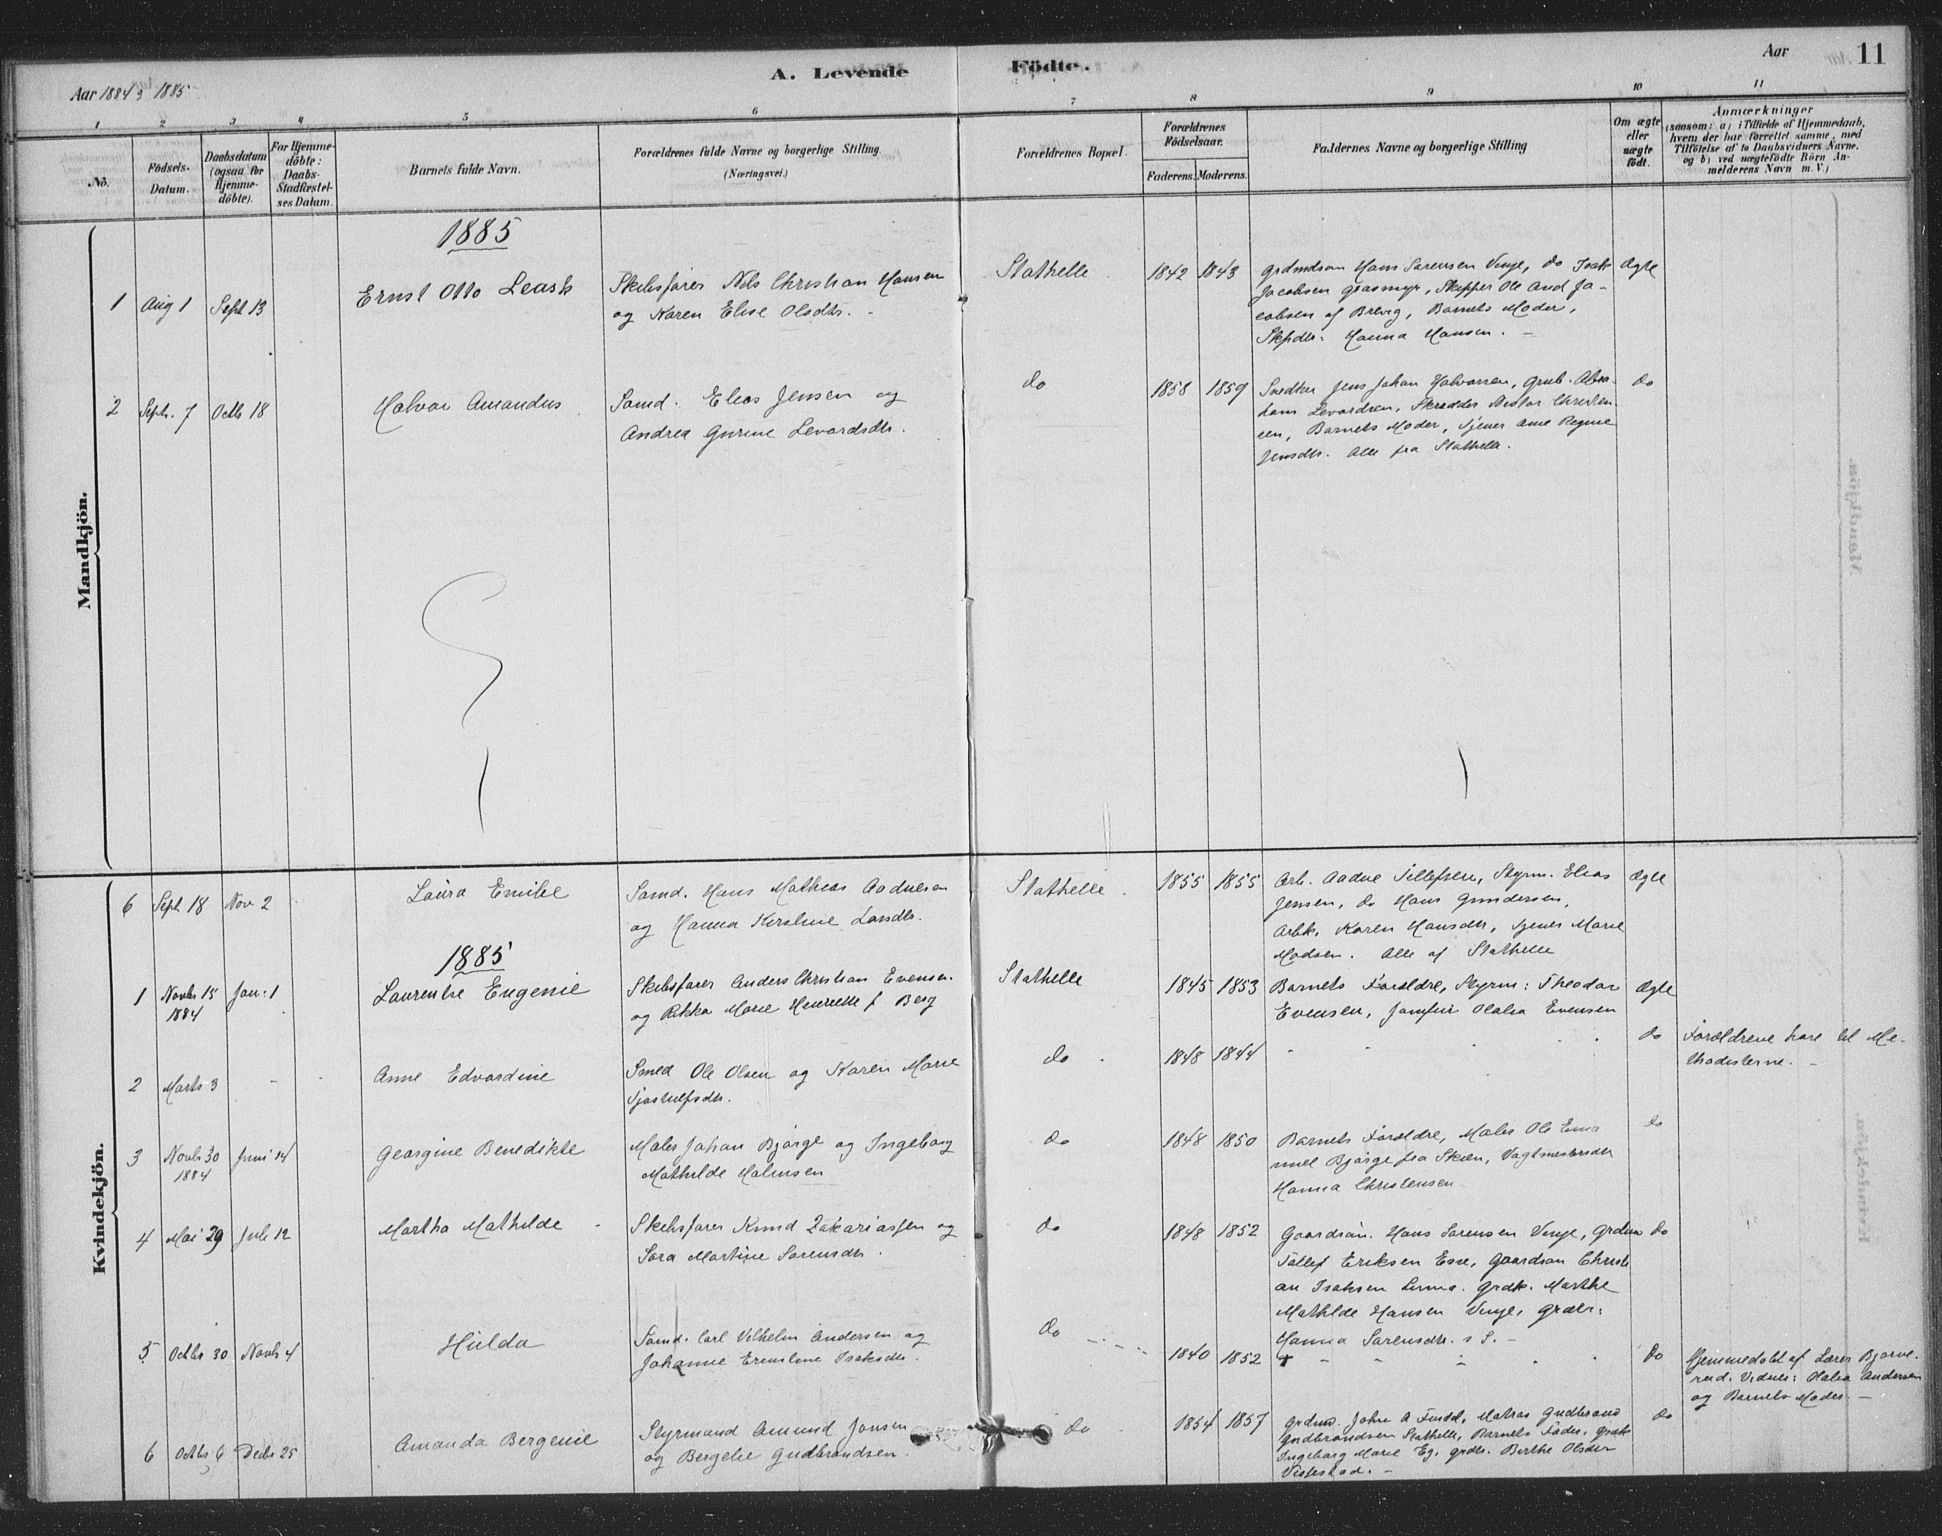 A. Levende Födte.
Aar 1884 & 1885
Aar 11
1 2 3 4 5 6 7 8 9 10 11
No.
Födsels-Datum.
Daabsdatum (ogsaa for Hjemme-döbte).
For Hjemme-döbte: Daabs-Stadfæstel-ses Datum.
Barnets fulde Navn.
Forældrenes fulde Navne og borgerlige Stilling. (Næringsvei.)
Forældrenes Bopæl.
Forældrenes Födselsaar.
Faderens. Moderens.
Faddernes Navne og borgerlige Stilling
Om ægte eller uægte födt.
Anmærkninger
(saasom: a) i Tilfælde af Hjemmedaab,
hvem der har forrettet samme, med
Tilföielse af to Daabsvidners Navne.
og b) ved uægtefödte Börn An-
melderens Navn m. V.)
Mandkjön.
1885
1 Aug 1 Sept 13 Ernst Otto Leask Skibsfører Nils Christian Hansen Stathelle 1842 1843 Grdmdsøn Hans Sørensen Vinje, do Isak Ægte
og Karen Elise Olsdtr. Jacobsen Grasmyr, Skipper Ole And Ja-
cobsen af Brevig, Barnets Moder,
Skpdtr: Hanna Hansen.
2 Septr. 7 Octb 18 Halvor Amandus Sømd. Elias Jensen og do 1858 1859 Snedker Jens Johan Halvorsen, Grub. Abra- do
Andrea Gurine Levordsdtr. ham Levordsen, Skrædder Christen-
sen, Barnets Moder, Tjener Anne Regine
Jensdtr. Alle fra Stathelle.
Kvindekjön.
6 Sept 18 Nov 2 Laura Emilie Sømd. Hans Mathias Aadnesen Stathelle. 1855 1855 Arb. Aadne Tellefsen, Styrm. Elias Ægte
og Hanna Kirstine Larsdtr. Jensen, do Hans Gundersen,
Arbk. Karen Hansdtr, Tjener Marie
Madsen. Alle af Stathelle
1885
1 Novbr 15 1884 Jan: 1 Laurentse Eugenie Skibsfører Anders Christian Evensen Stathelle 1845 1853 Barnets Forældre, Styrm: Theodor Ægte
og Rikka Marie Henriette f Berg Evensen, Jomfru Olalia Evensen
2 Marts 3 - Anne Edvardine Smed Ole Olsen og Karen Marie do 1848 1844 do Forældrene høre til Me-
thodisterne.
3 Novbr 30 1884 Juni 14 Georgine Benedikte Maler Johan Bjørge og Ingeborg do 1848 1850 Barnets Forældre, Maler Ole Ema do
Mathilde Halvorsen nuel Bjørge fra Skien, Vagtmesterdtr
Hanna Christensen
4 Mai 29 Juli 12 Martha Mathilde Skibsfører Knud Zakariassen og do 1848 1852 Gaardsøn. Hans Sørensen Vinje, Grdm do
Sara Martine Sørensdtr. Tollef Eriksen Esse, Gaardsøn Christi
an Isaksen Lunna. Grdk. Marthe
Mathilde Hansen Vinje, Grdtr:
Hanna Sørensdtr. s S.
5 Octbr 30 Novbr 4 Hulda Sømd. Carl Vilhelm Andersen og do 1840 1852 do Hjemmedøbt af Lærer Bjørne-
Johanne Ernstine Isaksdtr. rød. Vidner: Olalia Andersen
og Barnets Moder.
6 Octbr 6 Decbr 25 Amanda Bergenie Styrmand Amund Jonsen do 1854 1857 Grdmd. John A Findal, Matros Gudbrand do
og Bergelie Gudbrandsen Gudbrandsen Stathelle, Barnets Fader, Grdk
Ingeborg Marie Eg, Grdtr. Berthe Olsdtr
Vissestad.